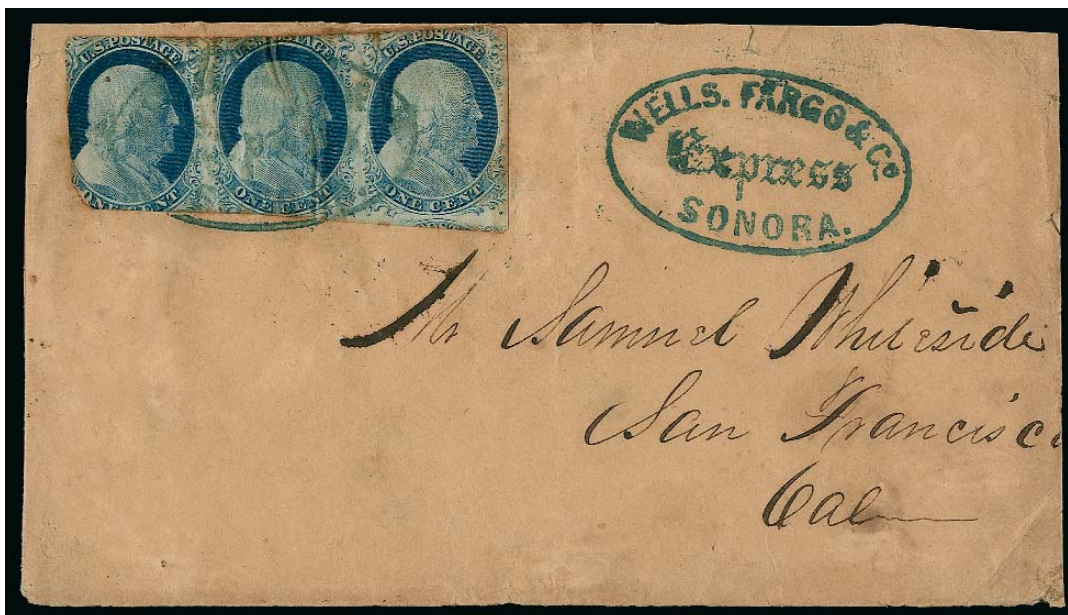 U.S. POSTAGE U.S. POSTAGE U.S. POSTAGE
ONE CENT ONE CENT ONE CENT
WELLS. FARGO & Co.
Express
SONORA.
Mr Samuel Whiteside
San Francisco
Cal